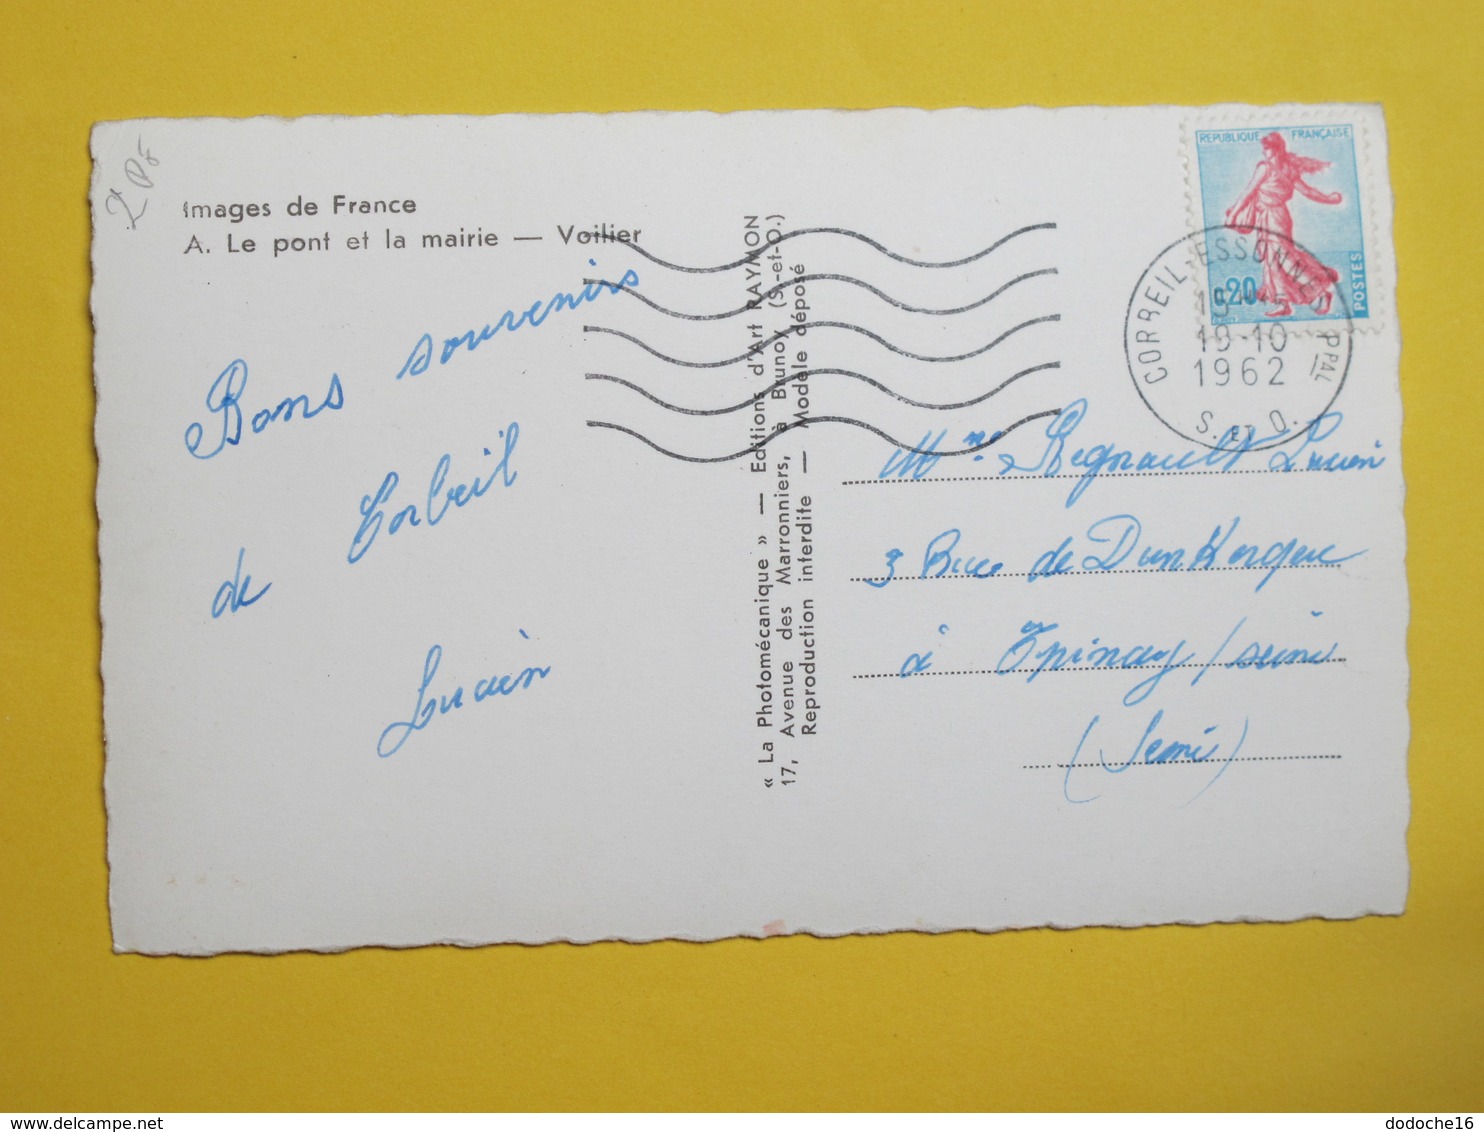 2 PF
Images de France
A. Le pont et la mairie — Voilier
Bons souvenirs
de Corbeil
Lucien
« La Photomécanique » — Editions d'Art RAYMON
17, Avenue des Marronniers, à Brunoy (S.-et-O.)
Reproduction interdite — Modèle déposé
REPUBLIQUE FRANÇAISE
0,20
POSTES
CORBEIL-ESSONNES PPAL
19-10
1962
S. ET O.
Mme Regnault Lucien
3 Rue de Dunkerque
à Epinay/seine
(Seine)
delcampe.net
dodoche16